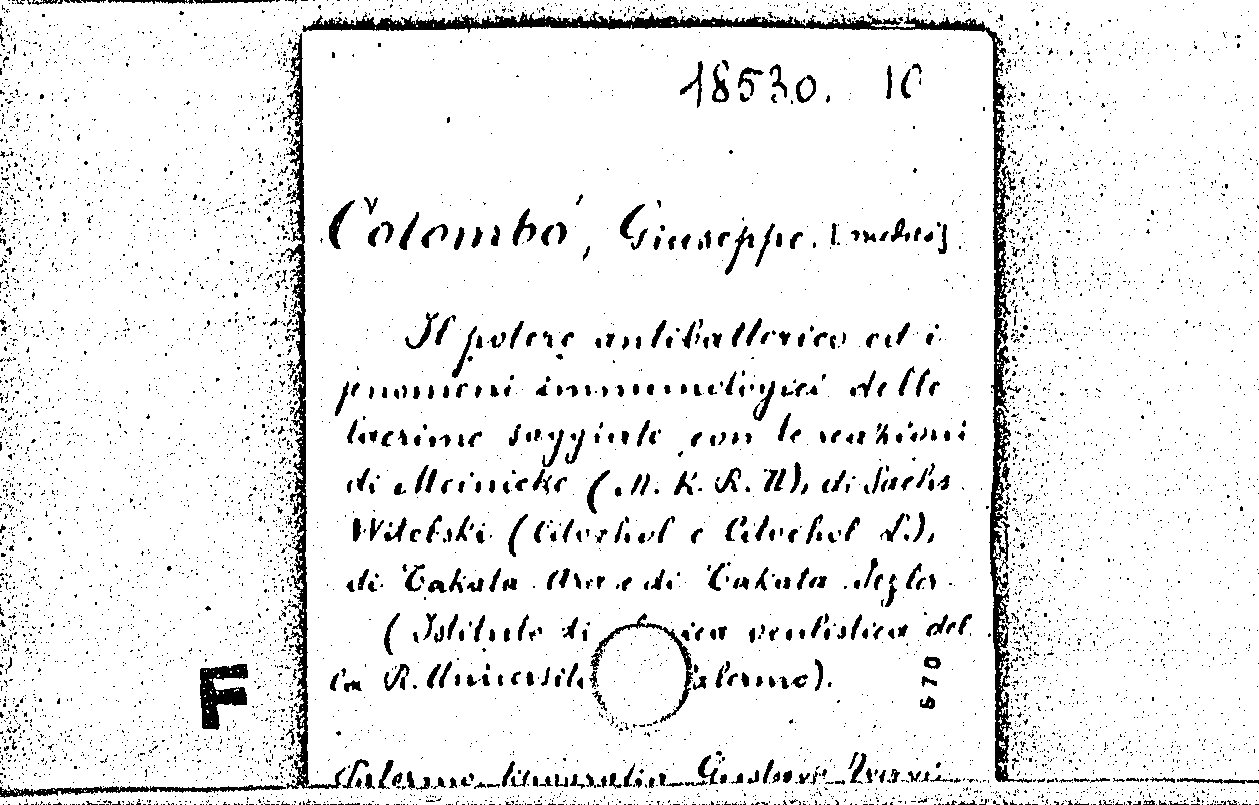 18530. 10
Colombo, Giuseppe. [medico]
Il potere antibatterico ed i
fenomeni immunologici delle
lacrime saggiate con le reazioni
di Meinicke (M. K. R. II), di Sachs
Witebski (Citochol e Citochol L.),
di Takata Ara e di Takata Jezler.
(Istituto di oculistica del
la R. Universita Palermo).
670
F
Palermo,